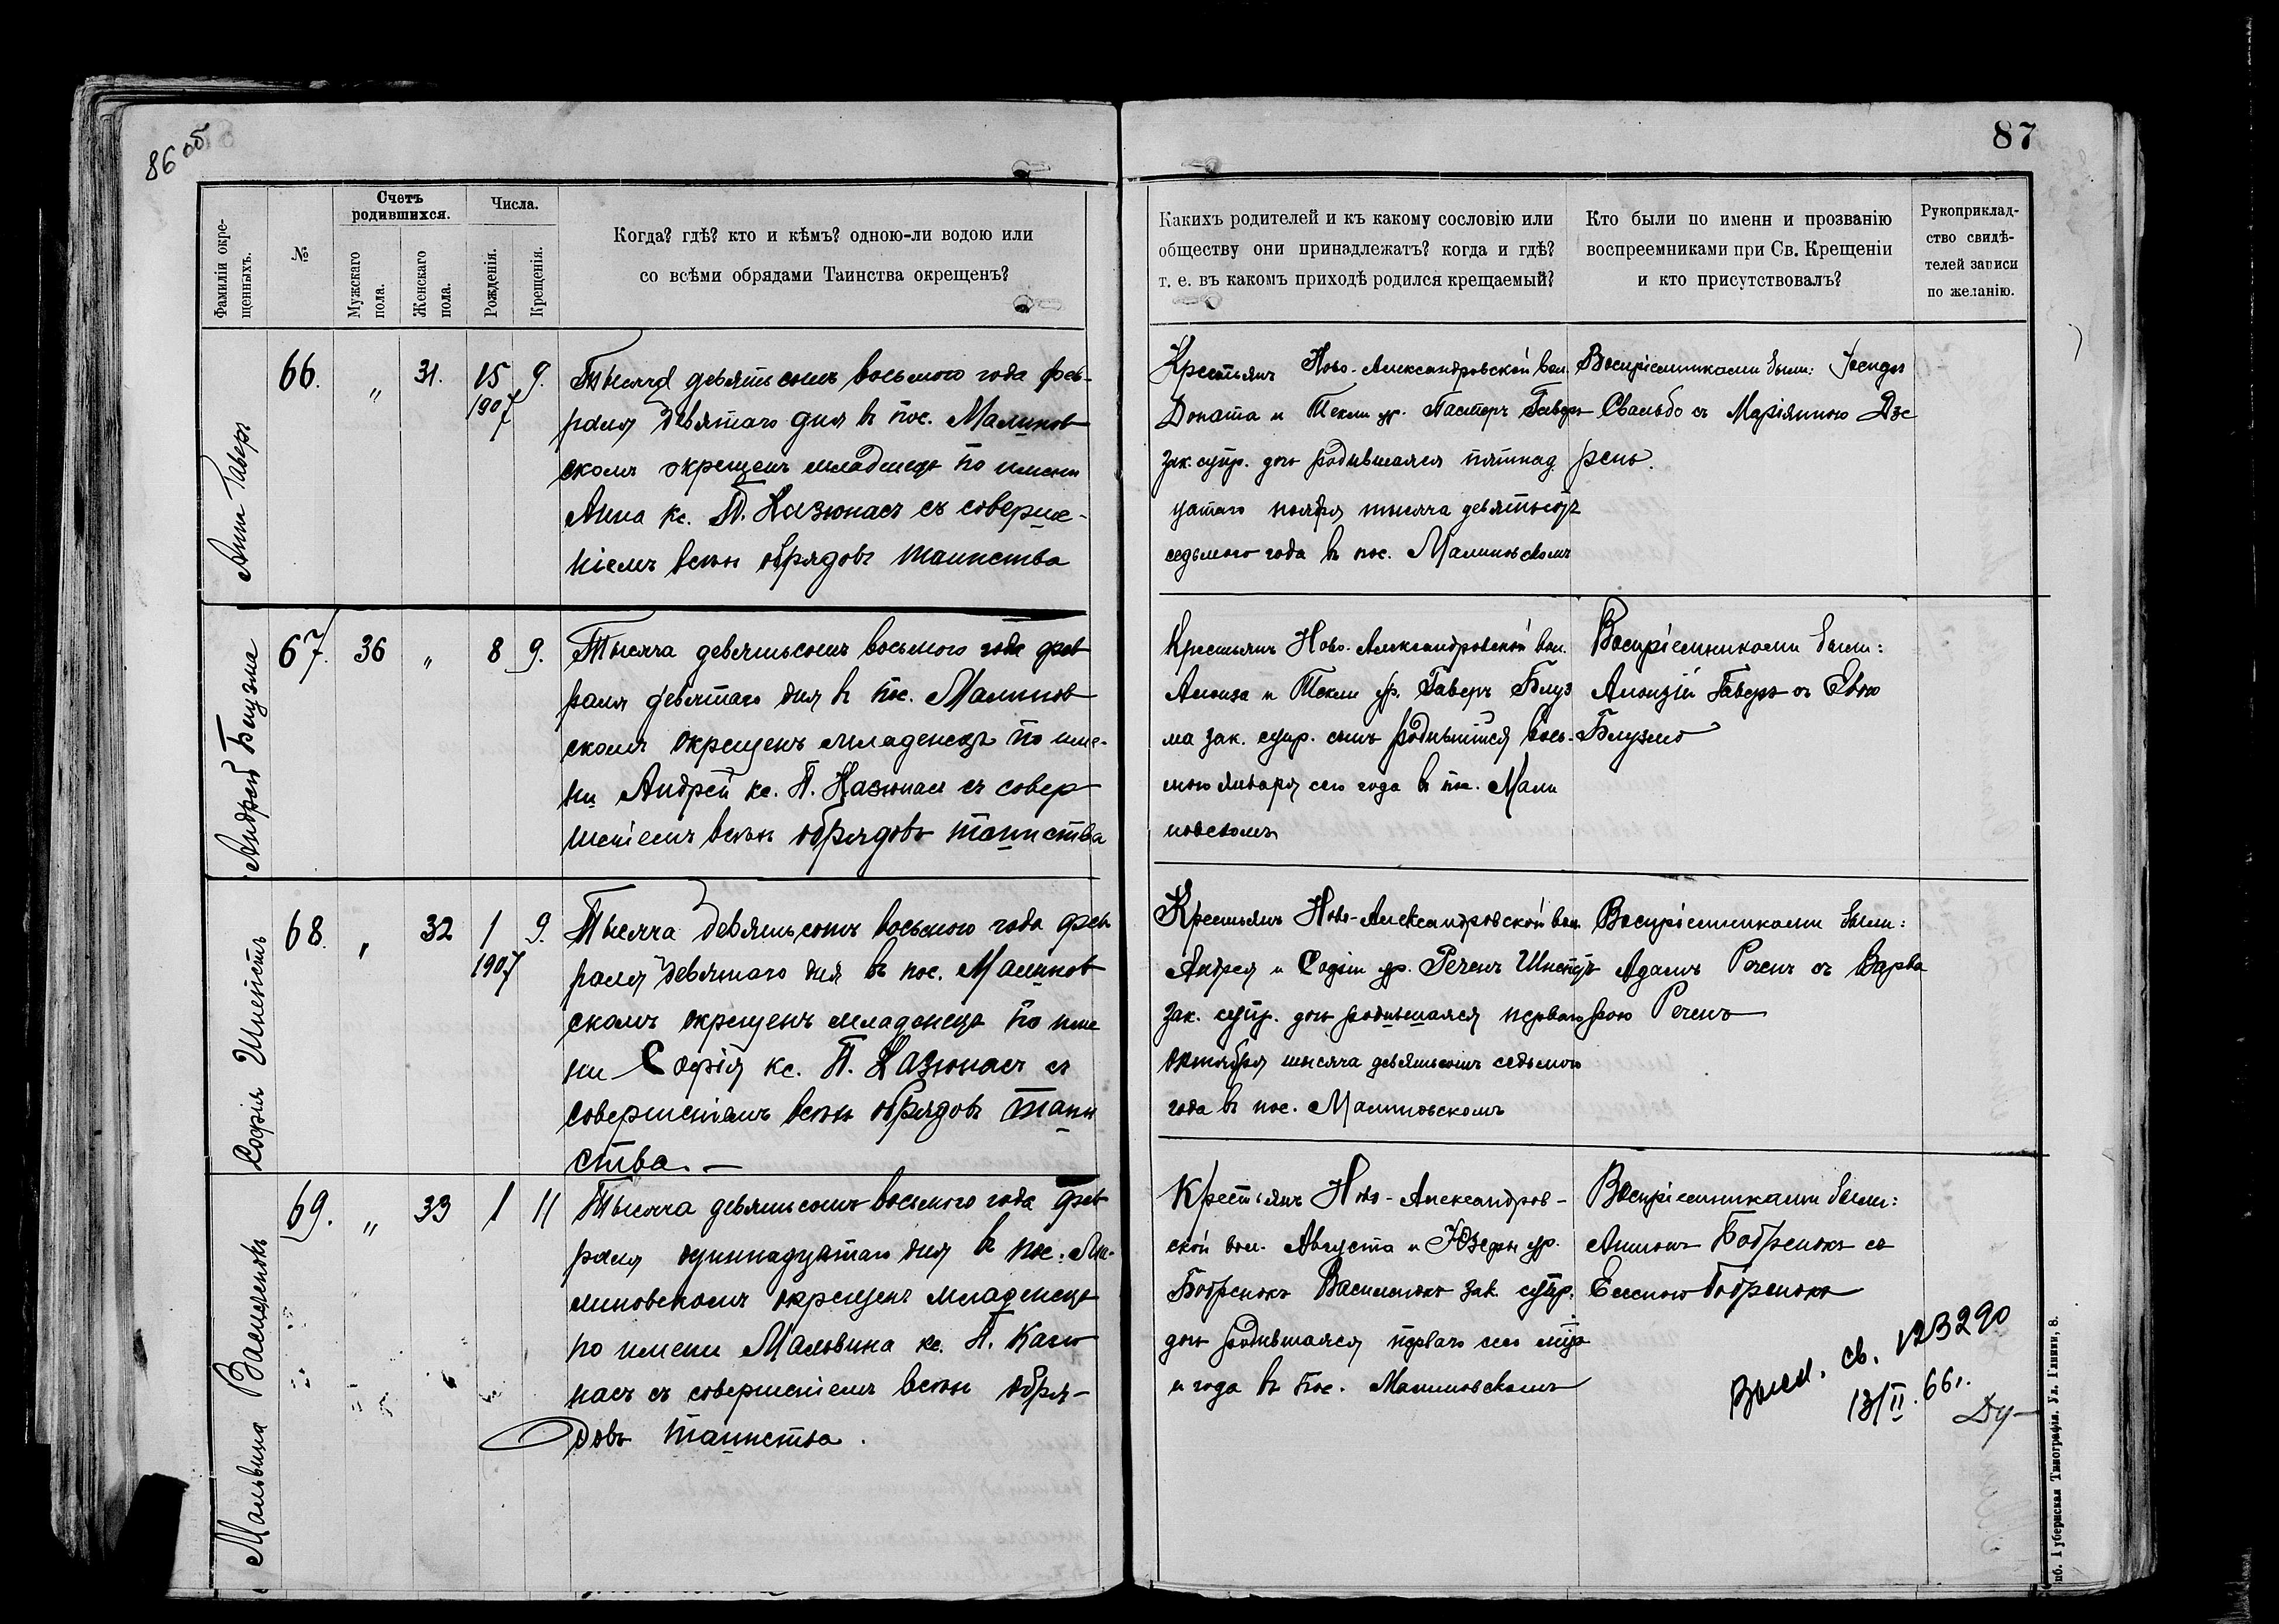 86 об
87
Фамиліи окрещенныхъ.
№
Счетъ родившихся.
Мужскаго пола.
Женскаго пола.
Числа.
Рожденія.
Крещенія.
Когда? гдѣ? кто и кѣмъ? одною-ли водою или
со всѣми обрядами Таинства окрещенъ?
Какихъ родителей и къ какому сословію или
обществу они принадлежатъ? когда и гдѣ?
т. е. въ какомъ приходѣ родился крещаемый?
Кто были по имени и прозванію
воспреемниками при Св. Крещеніи
и кто присутствовалъ?
Рукоприклад-
ство свидѣ-
телей записи
по желанію.
Анна Гаверъ
66.
"
31.
15
1907
9.
Тысяча девятьсотъ восьмого года фев-
раля девятаго дня въ пос. Малинов
скомъ окрещенъ младенецъ по имени
Анна кс. П. Казюнасъ съ соверше-
ніемъ всѣхъ обрядовъ таинства
Крестьянъ Ново-Александровской вол.
Доната и Текли ур. Пастеръ Гаверъ
зак. супр. дочь родившаяся пятнад
цатаго ноября тысяча девятьсотъ
седьмого года въ пос. Малиновскомъ
Воспріемниками были:
Свальбо съ Маріянною Дзе
рень.
Андрей Блузма
67.
36
"
8
9.
Тысяча девятьсотъ восьмого года фев
раля девятаго дня въ пос. Малинов
скомъ окрещенъ младенецъ по име-
ни Андрей кс. П. Казюнасъ съ совер
шеніемъ всѣхъ обрядовъ таинства
Крестьянъ Ново-Александровской вол.
Алоиза и Текли ур. Гаверъ Блуз
ма зак. супр. сынъ родившійся вось-
мого января сего года въ пос. Мали
новскомъ
Воспріемниками были:
Алоизій Гаверъ съ Евою
Блузмо
Софія Шнепстъ
68.
"
32
1
1907
9.
Тысяча девятьсотъ восьмого года фев
раля девятаго дня въ пос. Малинов
скомъ окрещенъ младенецъ по име
ни Софія кс. П. Казюнасъ съ
совершеніемъ всѣхъ обрядовъ таин
ства. —
Крестьянъ Ново-Александровской вол.
Андрея и Софіи ур. Реченъ Шнепстъ
зак. супр. дочь родившаяся перваго
октября тысяча девятьсотъ седьмого
года въ пос. Малиновскомъ
Воспріемниками были:
Адамъ Реченъ съ Варва
рою Реченъ
Мальвина Василенокъ
69.
"
33
1
11
Тысяча девятьсотъ восьмого года фев
раля одиннадцатаго дня въ пос. Ма-
линовскомъ окрещенъ младенецъ
по имени Мальвина кс. П. Казю
насъ съ совершеніемъ всѣхъ обря-
довъ таинства.
Крестьянъ Ново-Александров-
ской вол. Августа и Юзефы ур.
Бобренокъ Василенокъ зак. супр.
дочь родившаяся перваго сего мца
и года въ пос. Малиновскомъ
Воспріемниками были:
Антонъ Бобренокъ съ
Еленою Бобренокъ
Выд. св. №23290
13/II.66г.
Губернская Типографія. Ул. Глинки, 8.